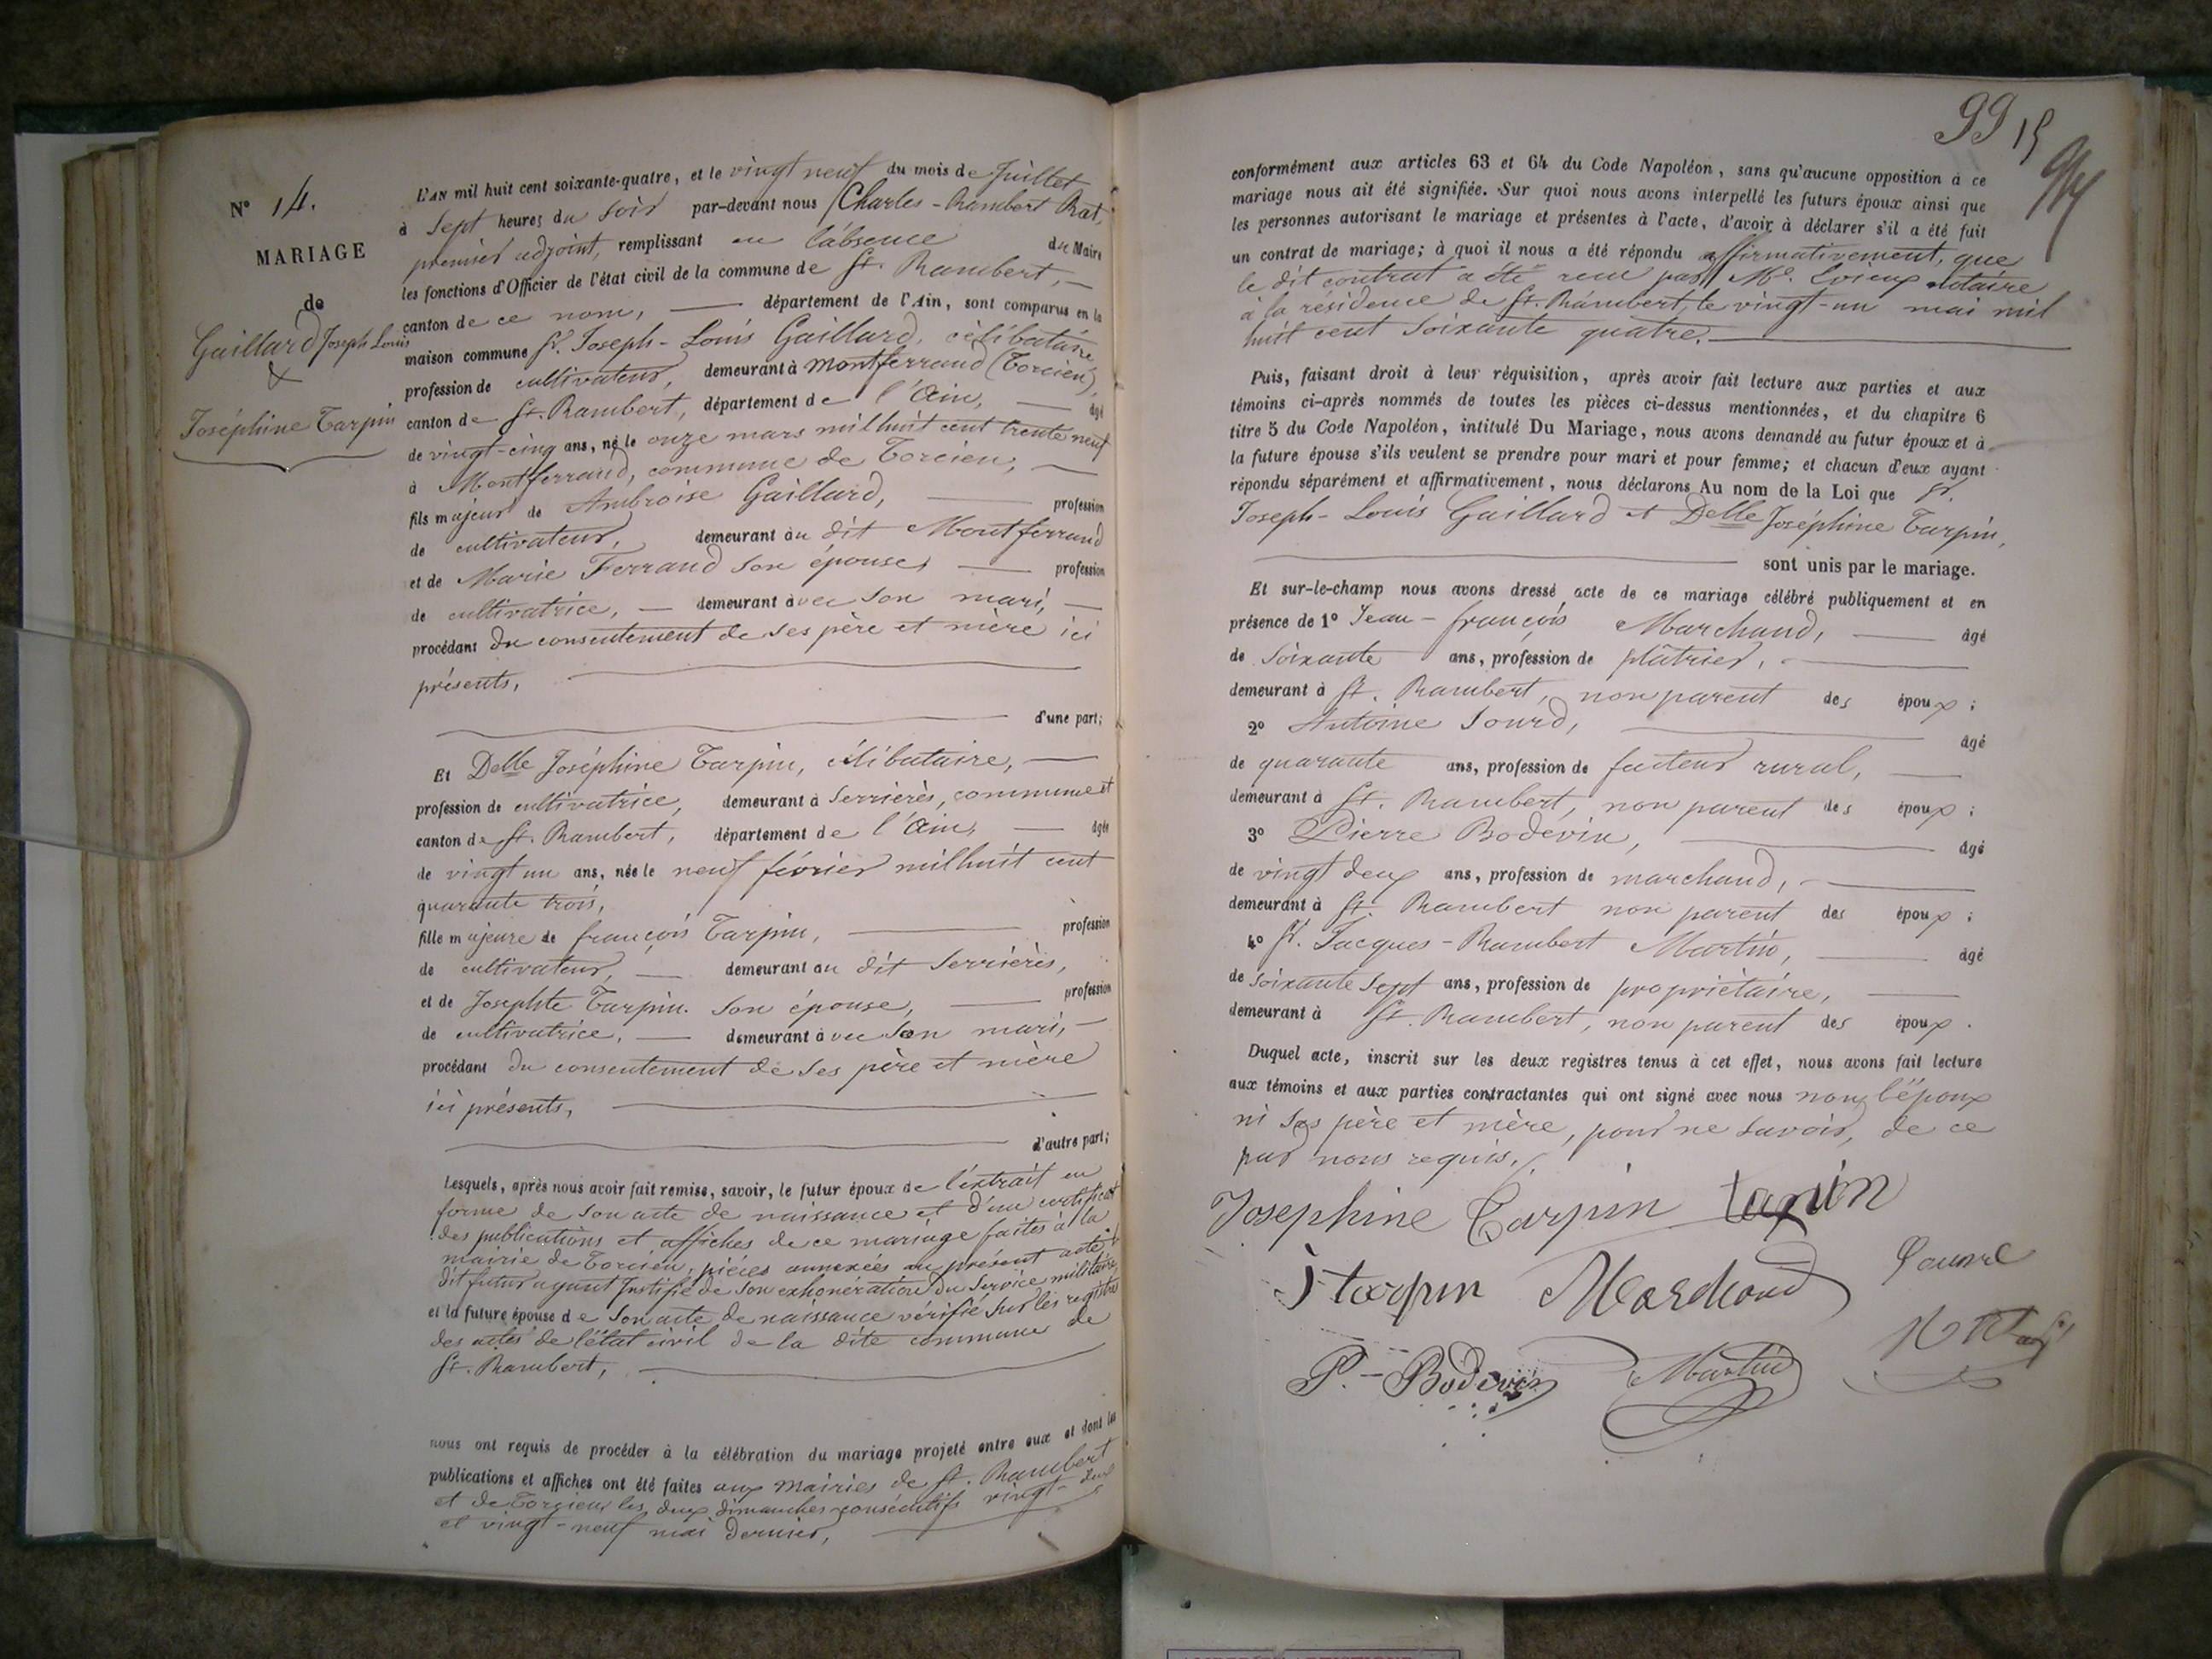 N° 14.
MARIAGE
de
Gaillard Joseph Louis
&
Joséphine Tarpin
L'AN mil huit cent soixante-quatre, et le vingt neuf du mois de Juillet
à Sept heures du Soir par-devant nous Charles-Rambert Rat,
premier adjoint, remplissant en l'absence du Maire
les fonctions d'Officier de l'état civil de la commune de St. Rambert,
canton de ce nom, département de l'Ain, sont comparus en la
maison commune Sr. Joseph-Louis Gaillard, célibataire
profession de cultivateur, demeurant à Montferrand (Torcieu),
canton de St. Rambert, département de l'Ain, âgé
de vingt-cinq ans, né le onze mars mil huit cent trente neuf
à Montferrand, commune de Torcieu,
fils majeur de Ambroise Gaillard, profession
de cultivateur, demeurant au dit Montferrand
et de Marie Ferrand son épouse, profession
de cultivatrice, demeurant avec son mari,
procédant du consentement de ses père et mère ici
présents,
d'une part;
Et Delle Joséphine Tarpin, célibataire,
profession de cultivatrice, demeurant à Serrières, commune et
canton de St. Rambert, département de l'Ain, âgée
de vingt un ans, née le neuf février mil huit cent
quarante trois,
fille majeure de françois Tarpin, profession
de cultivateur, demeurant au dit Serrières,
et de Josephte Tarpin son épouse, profession
de cultivatrice, demeurant avec son mari,
procédant du consentement de ses père et mère
ici présents,
d'autre part;
Lesquels, après nous avoir fait remise, savoir, le futur époux de l'extrait en
forme de son acte de naissance et d'un certificat
des publications et affiches de ce mariage faites à la
mairie de Torcieu, pièces annexées au présent acte,
dit futur ayant justifié de son exhonération du service militaire,
et la future épouse de son acte de naissance vérifié sur les registres
des actes de l'état civil de la dite commune de
St. Rambert,
nous ont requis de procéder à la célébration du mariage projeté entre eux et dont les
publications et affiches ont été faites aux mairies de St. Rambert
et de Torcieu les deux dimanches consécutifs vingt-deux
et vingt-neuf mai dernier,
99 15
conformément aux articles 63 et 64 du Code Napoléon, sans qu'aucune opposition à ce
mariage nous ait été signifiée. Sur quoi nous avons interpellé les futurs époux ainsi que
les personnes autorisant le mariage et présentes à l'acte, d'avoir à déclarer s'il a été fait
un contrat de mariage; à quoi il nous a été répondu affirmativement, que
le dit contrat a été reçu par Me. notaire
à la résidence de St. Rambert, le vingt-un mai mil
huit cent soixante quatre.
Puis, faisant droit à leur réquisition, après avoir fait lecture aux parties et aux
témoins ci-après nommés de toutes les pièces ci-dessus mentionnées, et du chapitre 6
titre 5 du Code Napoléon, intitulé Du Mariage, nous avons demandé au futur époux et à
la future épouse s'ils veulent se prendre pour mari et pour femme; et chacun d'eux ayant
répondu séparément et affirmativement, nous déclarons Au nom de la Loi que Sr.
Joseph-Louis Gaillard et Delle Joséphine Tarpin,
sont unis par le mariage.
Et sur-le-champ nous avons dressé acte de ce mariage célébré publiquement et en
présence de 1° Jean-françois Marchand, âgé
de soixante ans, profession de plâtrier,
demeurant à St. Rambert, non parent des époux;
2° Antoine Sourd, âgé
de quarante ans, profession de facteur rural,
demeurant à St. Rambert, non parent des époux;
3° Pierre Bodevin, âgé
de vingt deux ans, profession de marchand,
demeurant à St. Rambert non parent des époux;
4° Sr. Jacques-Rambert Martin, âgé
de soixante sept ans, profession de propriétaire,
demeurant à St. Rambert, non parent des époux.
Duquel acte, inscrit sur les deux registres tenus à cet effet, nous avons fait lecture
aux témoins et aux parties contractantes qui ont signé avec nous non l'époux
ni ses père et mère, pour ne savoir, de ce
par nous requis.
Josephine Tarpin tarpin
tarpin Marchand
P.-Bodevin Martin